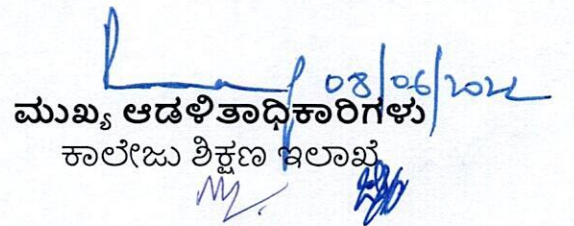 08/06/2022
ಮುಖ್ಯ ಆಡಳಿತಾಧಿಕಾರಿಗಳು
ಕಾಲೇಜು ಶಿಕ್ಷಣ ಇಲಾಖೆ